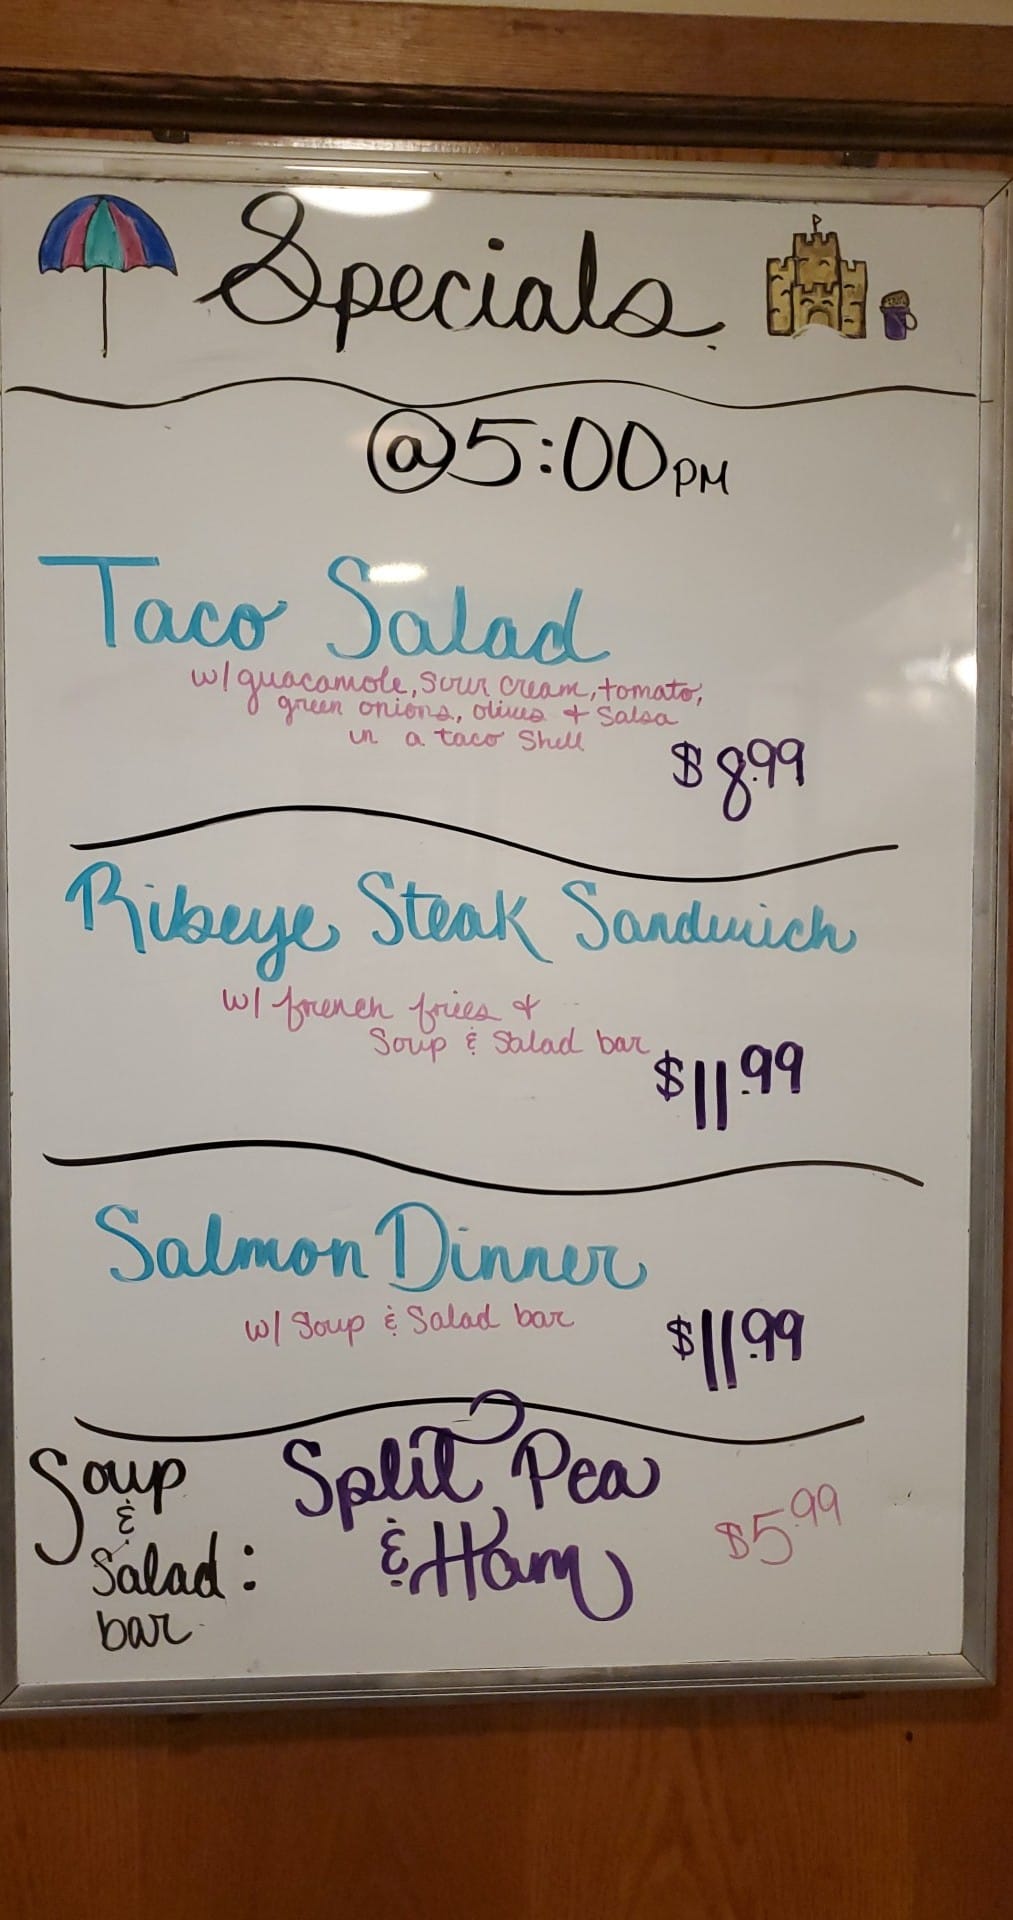 Specials
@5:00PM
Taco Salad
w/guacamole, sour cream, tomato,
green onions, olives & Salsa
in a taco Shell
$8.99
Ribeye Steak Sandwich
w/ french fries &
Soup & Salad bar
$11.99
Salmon Dinner
w/ Soup & Salad bar
$11.99
Soup
&
Salad:
bar
Split Pea
& Ham
$5.99